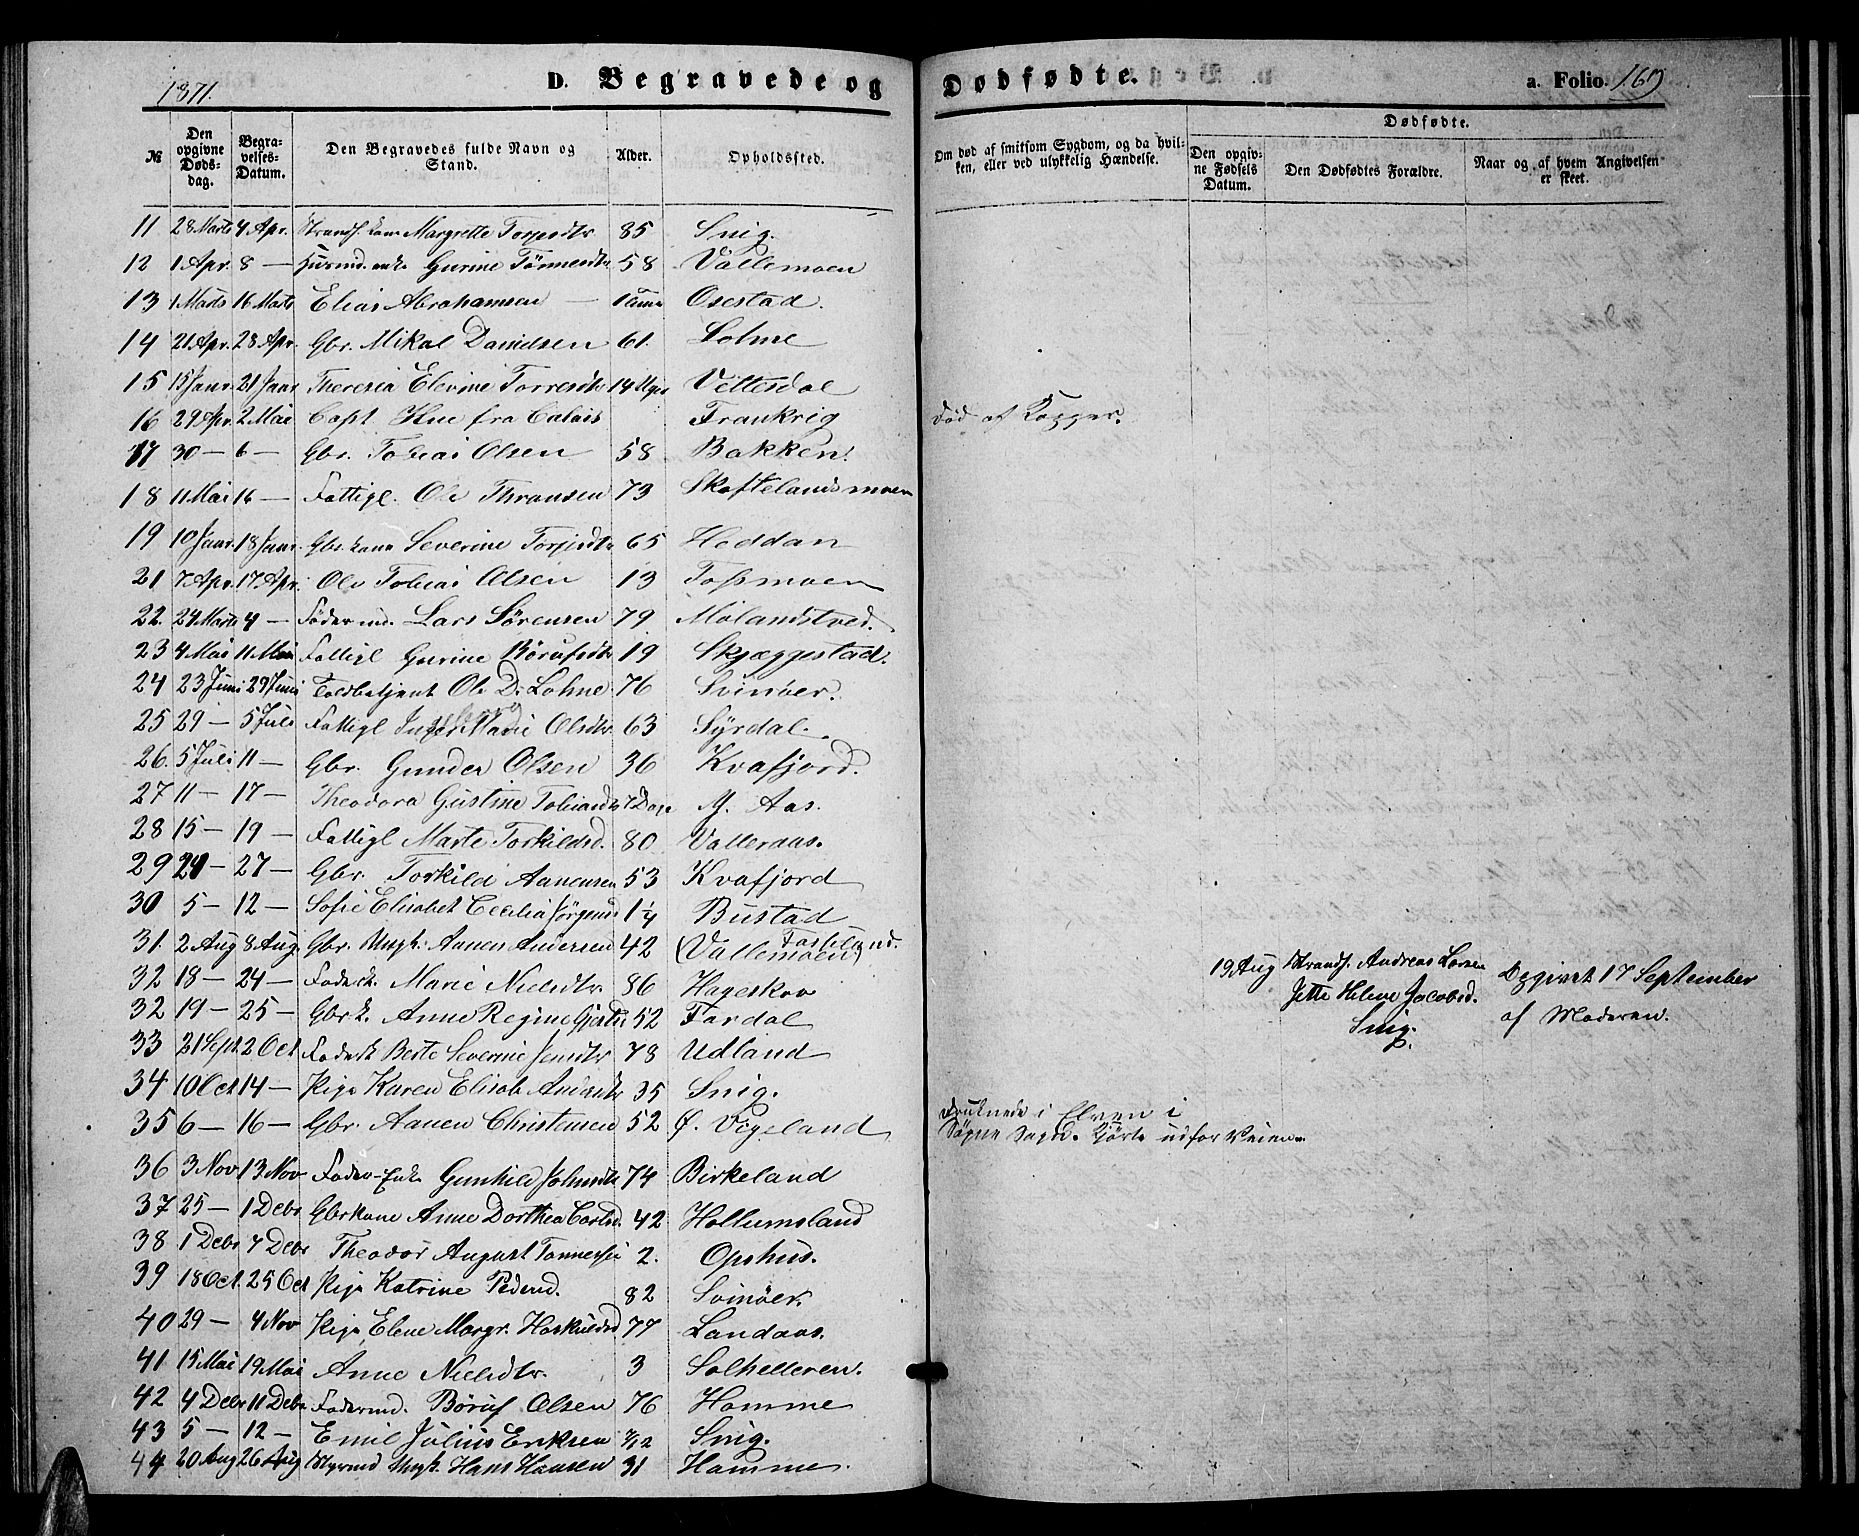 1871.
D. Begravede og Dødfødte.
a. Folio. 169
№ Den opgivne Dødsdag. Begravelses-Datum. Den Begravedes fulde Navn og Stand. Alder. Opholdssted. Om død af smitsom Sygdom, og da hvilken, eller ved ulykkelig Hændelse. Dødfødte. Den opgivne Fødsels Datum. Den Dødfødtes Forældre. Naar og af hvem Angivelsen er skeet.
11 28 Marts 4 Apr. Strandf. kone Margrette Torjusdtr 85 Snig.
12 1 Apr. 8 — Husmd. enke Gurine Tönnesdtr 58 Vallemoen
13 1 Marts 16 Marts Elias Abrahamsen — Osestad.
14 21 Apr. 28 Apr. Gbr. Mikal Davidsen 61. Lohne
15 15 Janr. 21 Janr Theresia Elevine Torresdtr 14 Uger Vittesdal
16 29 Apr. 2 Mai Capt. fra Calais Frankrig Död af Kopper.
17 30 — 6 — Gbr. Tobias Olsen 58 Bakken.
18 11 Mai 16 — Fattigl. Ole Thronsen 73 Skoftelandsmoen
19 10 Janr. 18 Janr. Gbr. kone Severine Torjusdtr 65 Heddan
21 7 Apr. 17 Apr. Ole Tobias Olsen 13 Tossmoen
22. 24 Marts 4 — Födermd. Lars Sörensen 79 Mölandstved.
23 4 Mai 11 Mai Fattigl Gurine Börufsdtr 19 Skjæggestad.
24 23 Juni 29 Juni Toldbetjent Ole D. Lohne 76 Svinöer.
25 29 — 5 Juli Fattigl Inger Marie Olsdtr. 63 Syrdal.
26. 5 Juli 11 — Gbr. Gunder Olsen 36 Kvafjord.
27 11 — 17 — Theodora Gustine Tobiasdtr 7 Dage Y. Aas.
28 15 — 19 — Fattigl Marte Torkildsd. 80 Valleraas.
29 24 — 27 — Gbr. Torkild Aanensen 53 Kvafjord
30 5 — 12 — Sofie Elisabet Cecilia Jörgensd 1¼ Bustad
31. 2 Aug 8 Aug. Gbr. Ungk. Aanen Andersen 42 (Vallemoen)
32 18 — 24 — Foderk. Marie Nielsdtr. 86 Hageskov
32 19 — 25 — Gbrk. Anne Regine Gjertsd 52 Fardal
19 Aug Strandf. Andreas Larsen
Jette Helene Jacobsd.
Snig.
Opgivet 17 September
af Moderen.
33 21 Sept. 2 Oct Foderk Berte Severine Jensdtr 78 Udland
34 10 Oct 14 — Pige Karen Elisab. Andersdtr 35 Snig.
35 6 — 16 — Gbr. Aanen Christensen 52 Ø. Vigeland
Druknede i Elven i
Søgne Sogn. Kjörte udfor Veien
36 3 Nov 13 Nov Foder-Enke Gunhild Johnsdtr 74 Birkeland
37 25 — 1 Debr Gbrkone Anne Dorthea Carlsd. 42 Hollumsland
38 1 Debr 7 Debr Theodor August Tönnessen 2. Opshus.
39 18 Oct. 25 Oct Pige Katrine Pedersd. 82 Svinöer.
40 29 — 4 Nov Pige Elene Margr. Haskildsd 77 Landaas.
41 15 Mai 19 Mai Anne Nielsdtr. 3 Solhelleren.
42 4 Debr 11 Debr Fodermd. Böruf Olsen 76 Homme
43 5 — 12 — Emil Julius Eriksen 7/12 Snig.
44 20 Aug 26 Aug Styrmd Ungk. Hans Hansen 31 Homme.